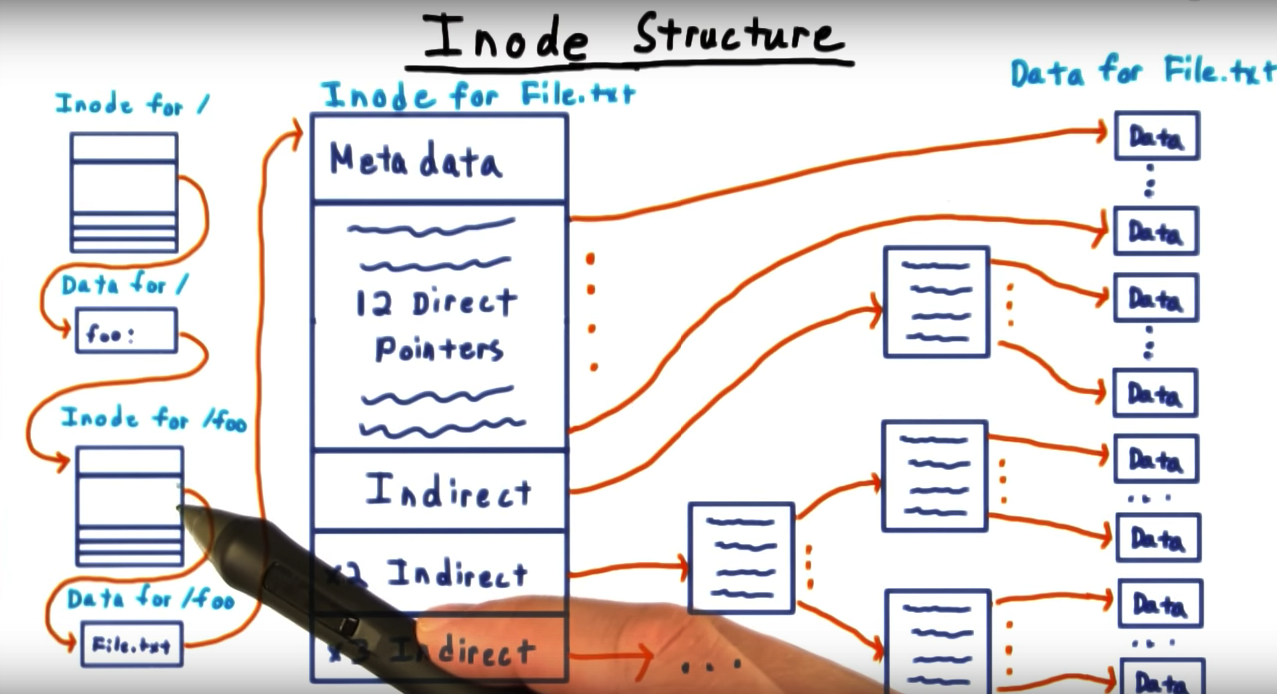 Inode Structure
Inode for /
Data for /
foo:
Inode for /foo
Data for /foo
File.txt
Inode for File.txt
Metadata
12 Direct
Pointers
Indirect
x2 Indirect
x3 Indirect
...
Data for File.txt
Data
Data
Data
Data
Data
...
Data
Data
...
Data